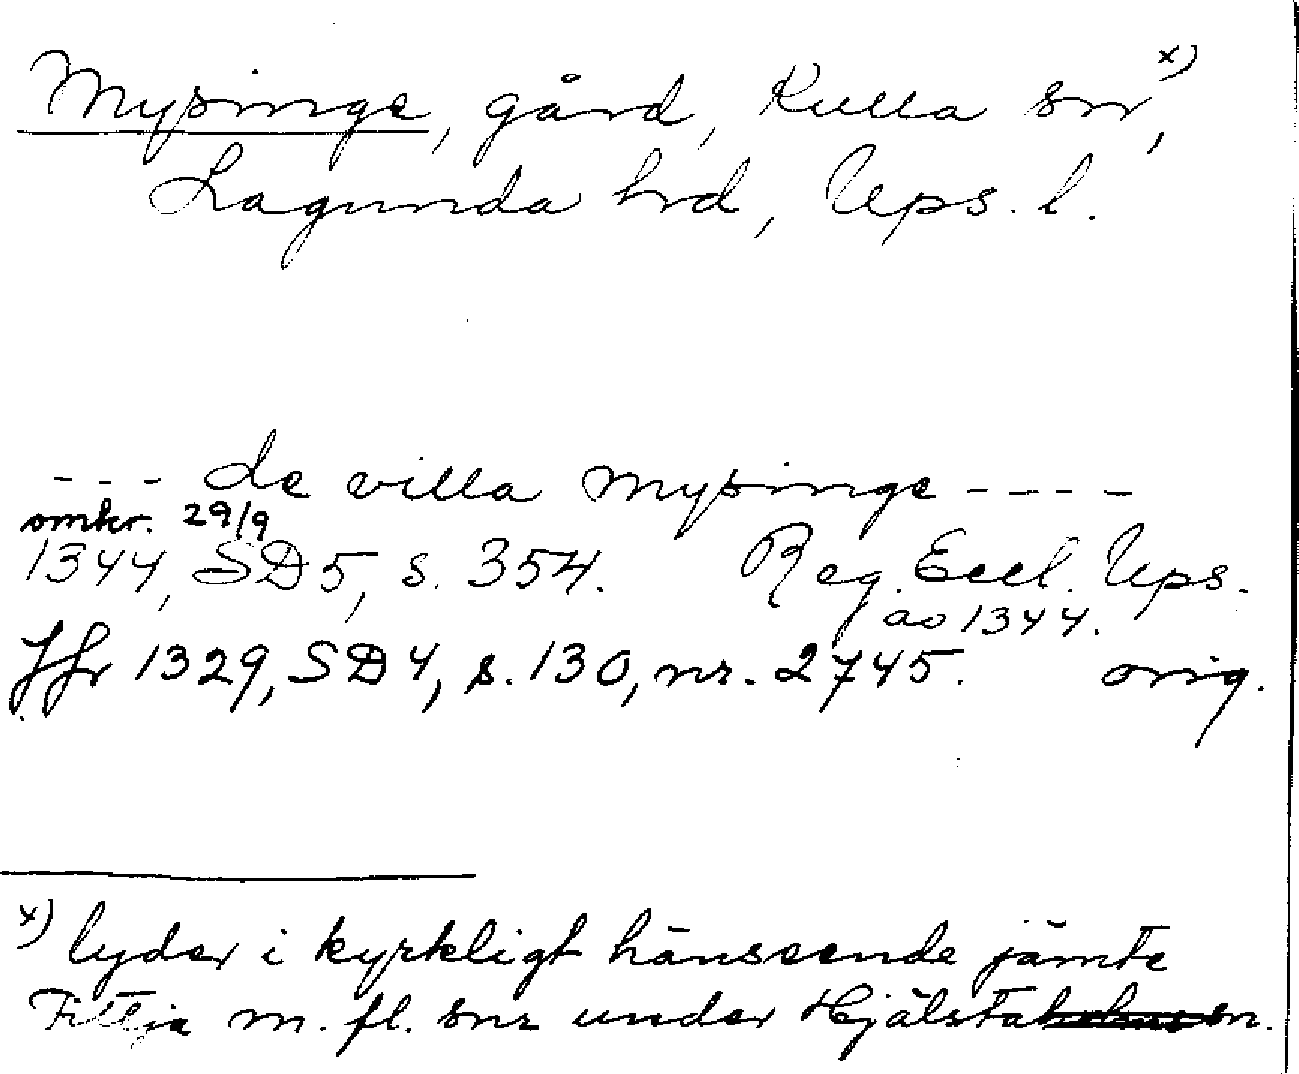 Mysinge, gård, Kulla sn x),
Lagunda hd, Ups. l.
--- de villa mysinge ----
omkr. 29/9
1344, SD 5, s. 354. Reg. Eccl. Ups.
ao 1344.
Jfr 1329, SD 4, s. 130, nr. 2745. orig.
x) lyder i kyrkligt hänseende jämte
Fittja m. fl. snr under Hjälsta sn.